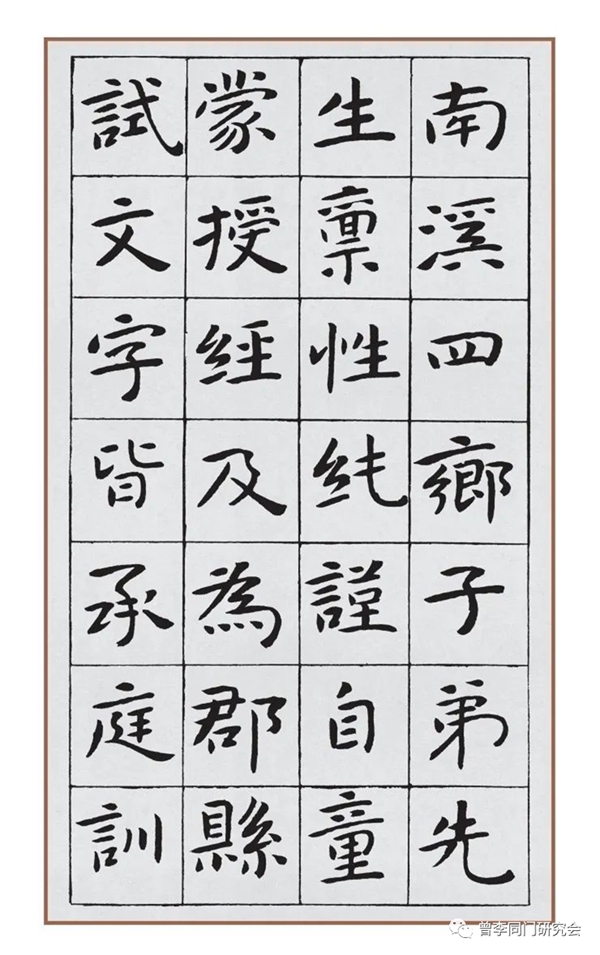 南溪四鄉子弟先
生禀性純謹自童
蒙授經及為郡縣
試文字皆承庭訓
曾李同门研究会